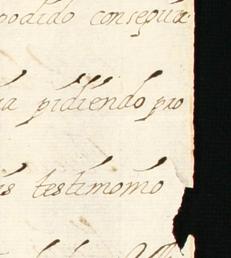 podido consegui
a pidiendo pro
testimonio